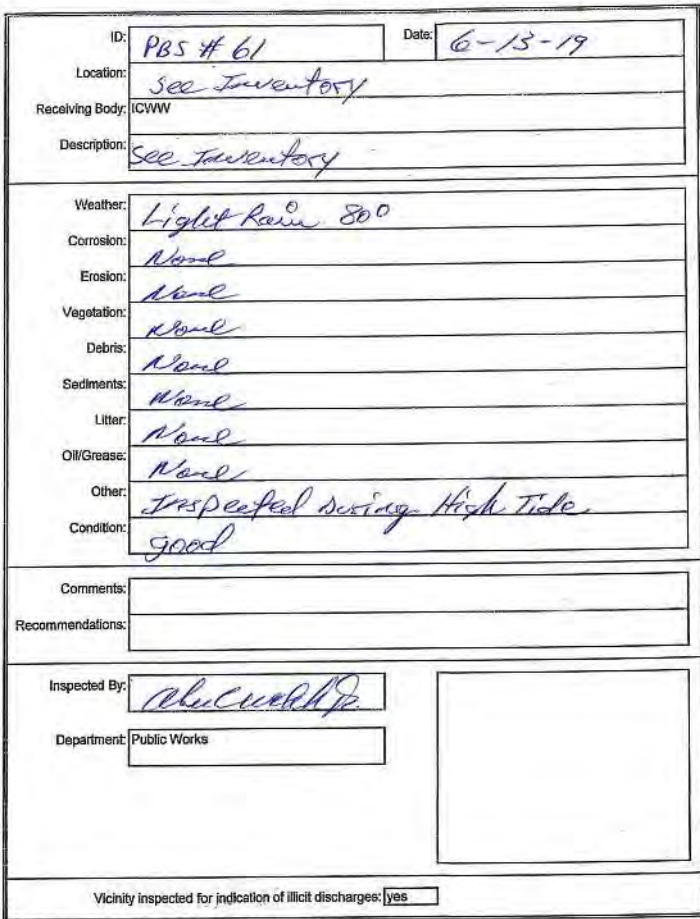 ID: PBS # 61 Date: 6-13-19
Location: See Inventory
Receiving Body: ICWW
Description: See Inventory
Weather: Light Rain 80°
Corrosion: None
Erosion: None
Vegetation: None
Debris: None
Sediments: None
Litter: None
Oil/Grease: None
Other: Inspected During High Tide
Condition: good
Comments:
Recommendations:
Inspected By:
Department: Public Works
Vicinity inspected for indication of illicit discharges: yes